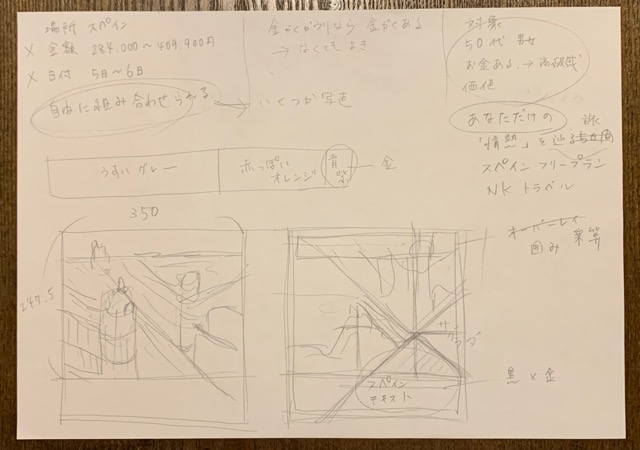 場所 スペイン
× 金額 284.000～409.900円
× 日付 5日～6日
自由に組み合わせられる
→ なくてもよき
いくつか写真
対象
50代 男女
お金ある → 高級感
価値
あなただけの
「情熱」を巡る
スペイン フリープラン
NK トラベル
うすい グレー
赤っぽい
オレンジ
金
350
247.5
オーバーレイ
囲み
サグラダ
スペイン
テキスト
黒 × 金